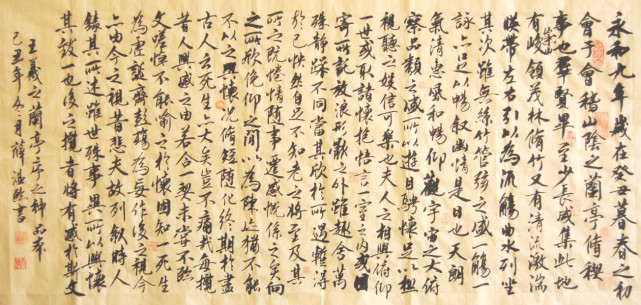 永和九年歲在癸丑暮春之初
會于會稽山陰之蘭亭脩禊
事也群賢畢至少長咸集此地
有崇峻領茂林脩竹又有清流激湍
暎帶左右引以為流觴曲水列坐
其次雖無絲竹管弦之盛一觴一
詠亦足以暢叙幽情是日也天朗
氣清惠風和暢仰觀宇宙之大俯
察品類之盛所以遊目騁懷足以極
視聽之娛信可樂也夫人之相與俯仰
一世或取諸懷抱悟言一室之內或因
寄所託放浪形骸之外雖趣舍萬
殊靜躁不同當其欣於所遇暫得
於己怏然自足不知老之將至及其
所之既惓情隨事遷感慨係之矣向
之所欣俛仰之間以為陳迹猶不能
不以之興懷況脩短隨化終期於盡
古人云死生亦大矣豈不痛哉每攬
昔人興感之由若合一契未嘗不臨
文嗟悼不能喻之於懷固知一死生
為虛誕齊彭殤為妄作後之視今
亦由今之視昔悲夫故列叙時人
錄其所述雖世殊事異所以興懷
其致一也後之攬者將有感於斯文
王羲之蘭亭序之神品本
己丑年冬月薛書